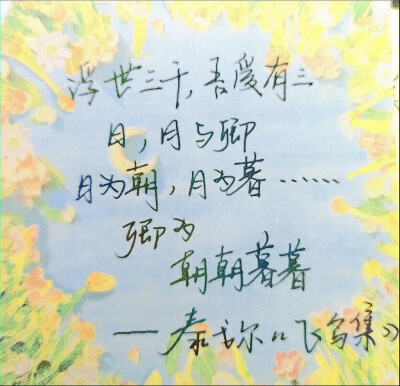 浮世三千,吾爱有三
日,月与卿
日为朝,月为暮……
卿为
朝朝暮暮
——泰戈尔《飞鸟集》